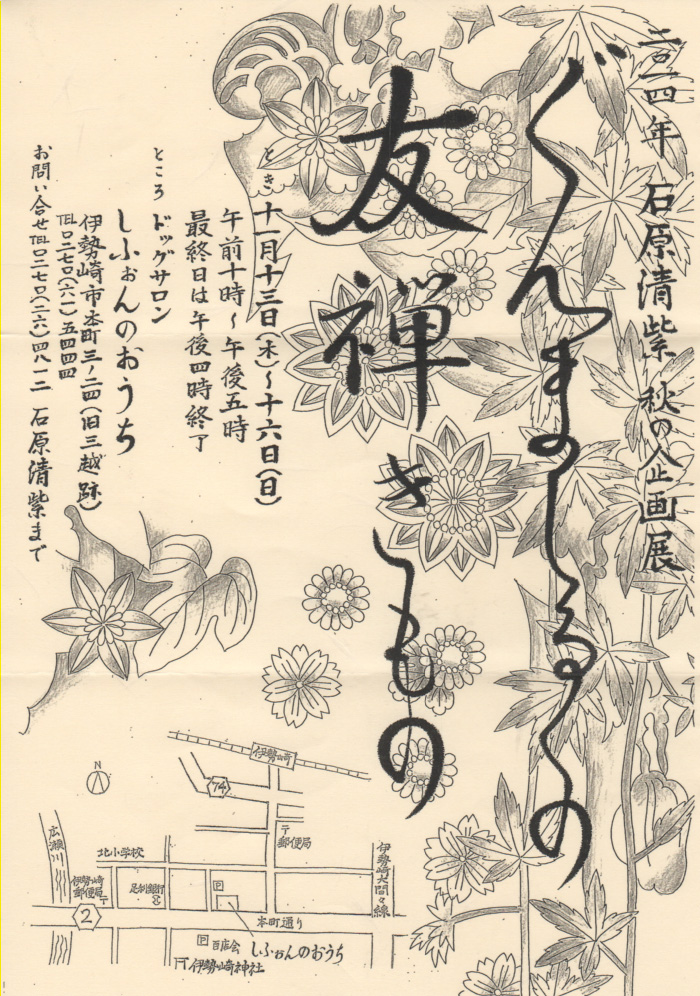 二〇一四年 石原清紫 秋の企画展
ぐんましるくの
友禅きもの
とき 十一月十三日(木)〜十六日(日)
午前十時〜午後五時
最終日は午後四時終了
ところ ドッグサロン
しふぉんのおうち
伊勢崎市本町三ノ二四(旧三越跡)
TEL〇二七〇(六一)五四四四
お問い合せTEL〇二七〇(二六)四八一二 石原清紫まで
N
伊勢崎
74
〒
郵便局
広瀬川
北小学校
伊勢崎
郵便局
〒
足利銀行
P
伊勢崎大間々線
2
本町通り
P 百店会
しふぉんのおうち
伊勢崎神社